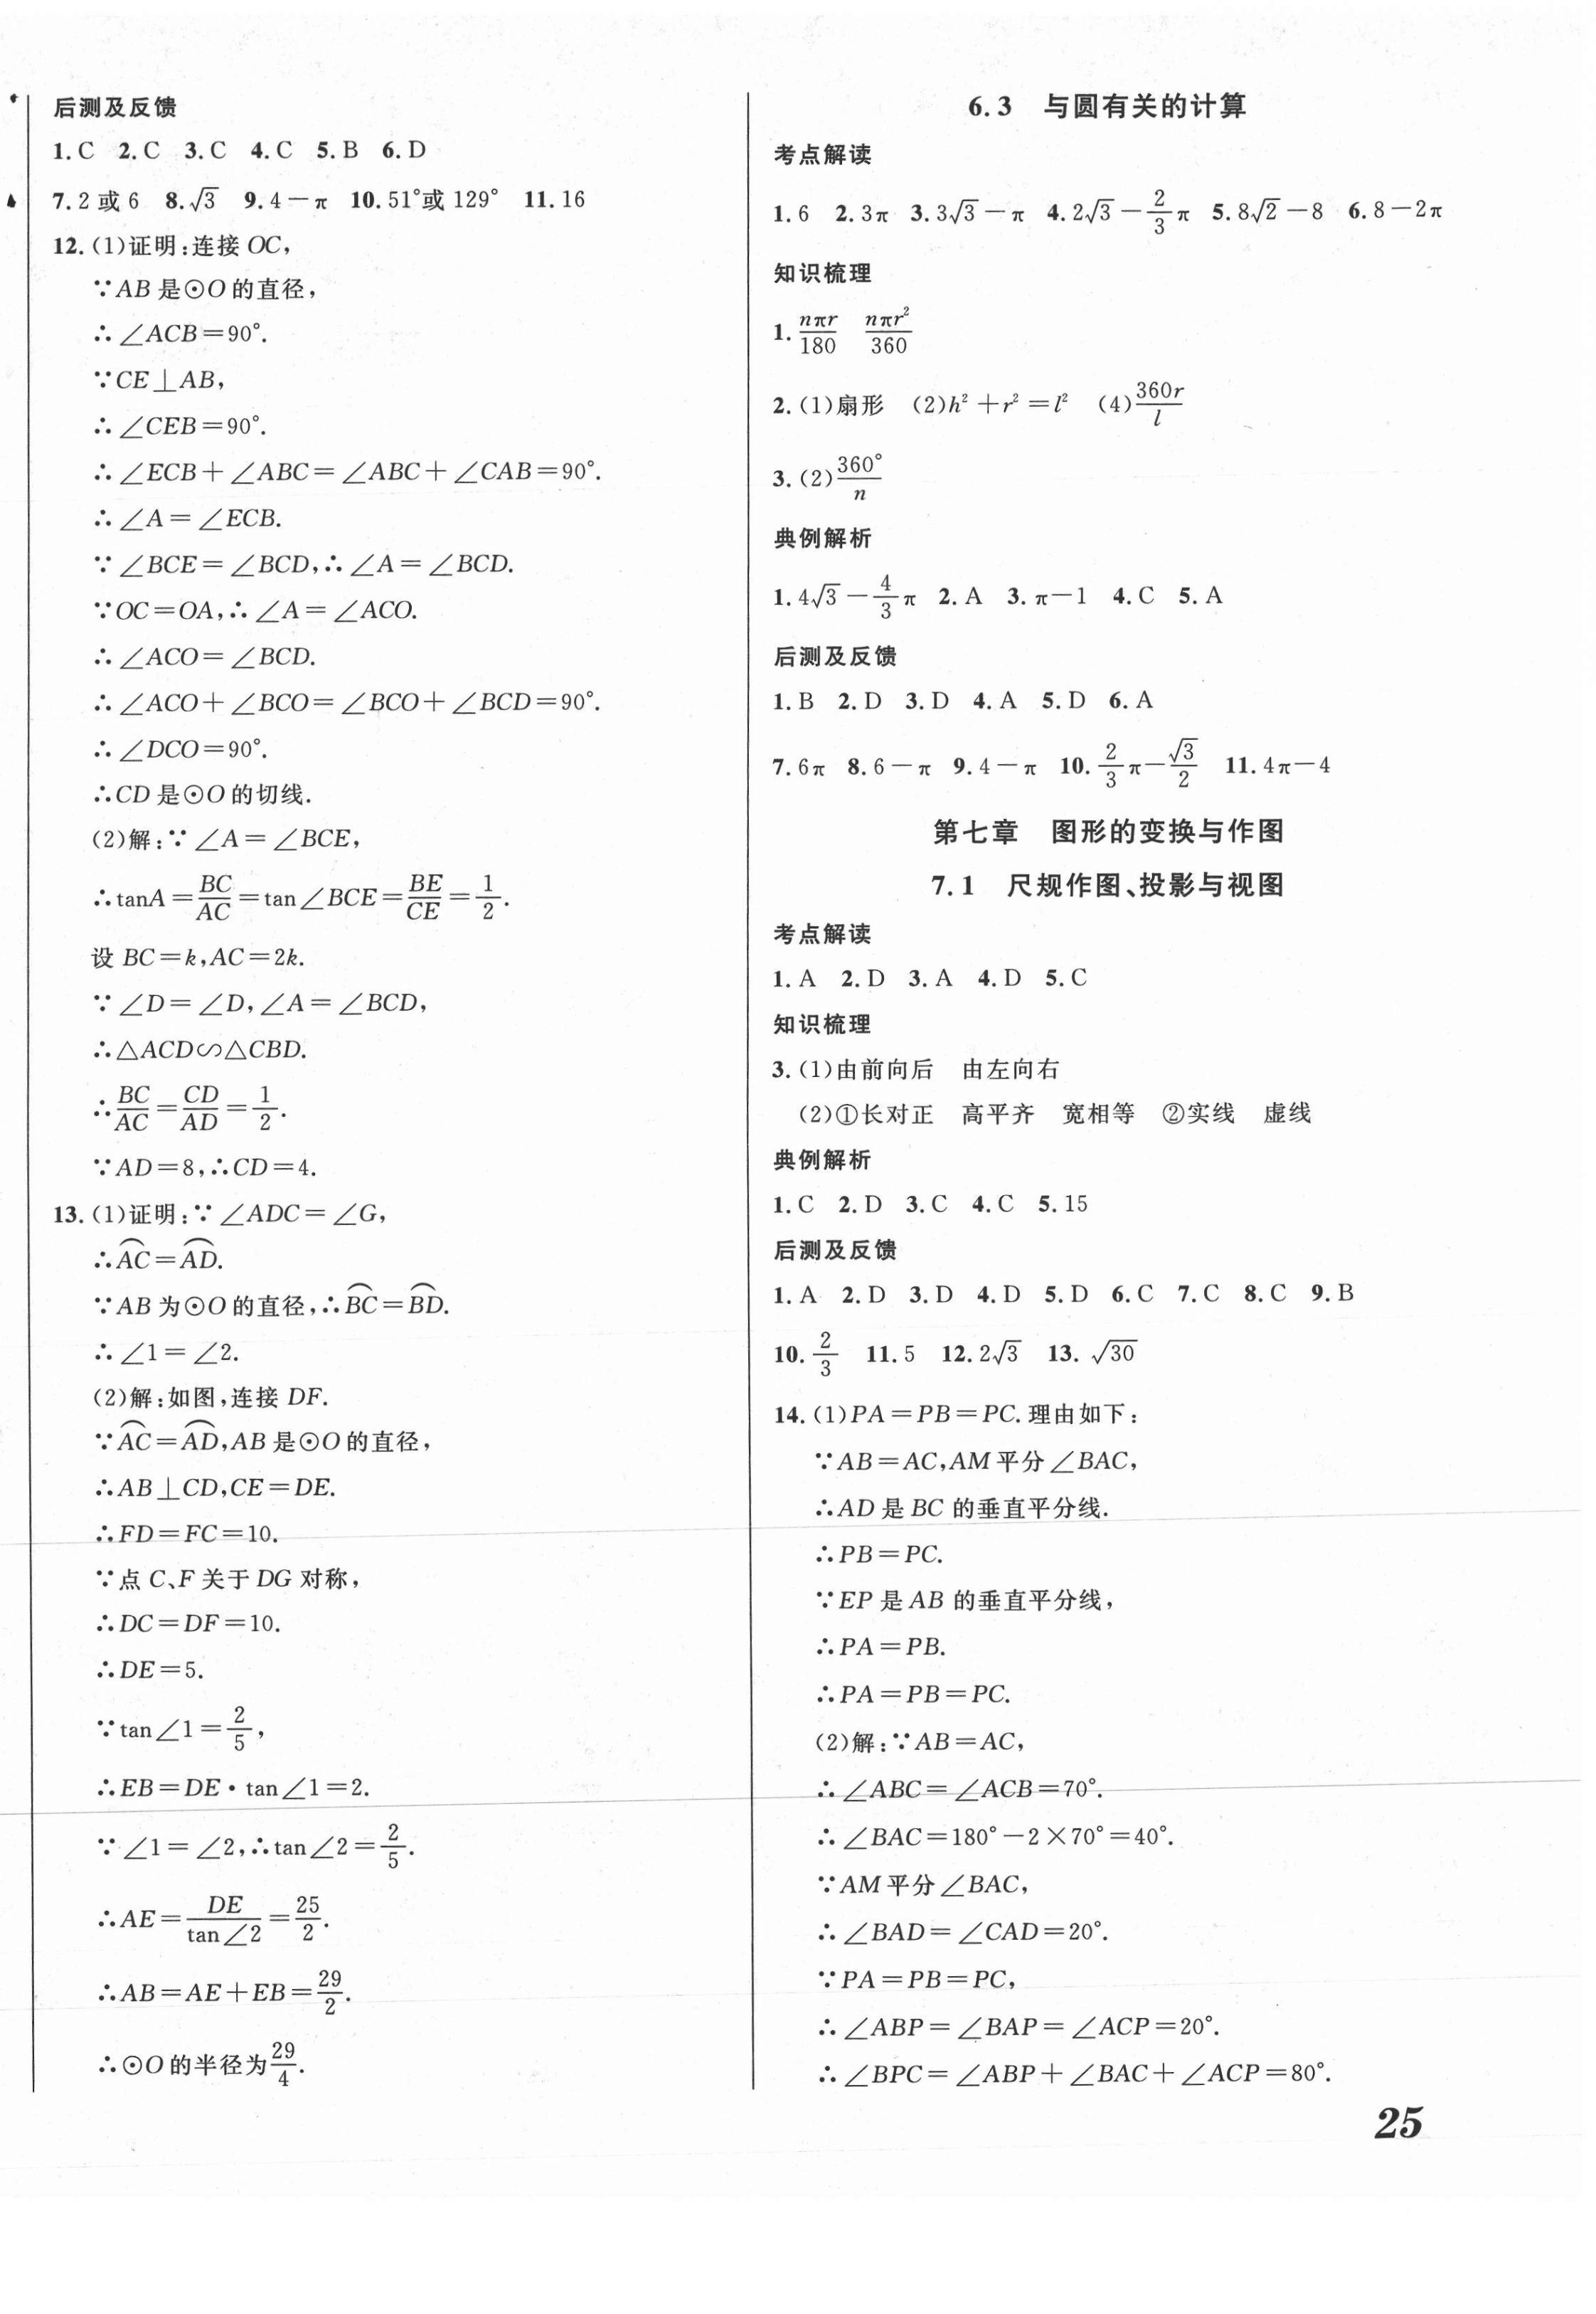 后测及反馈
1.C 2.C 3.C 4.C 5.B 6.D
7.2或6 8.√3 9.4－π 10.51°或129° 11.16
12.(1)证明:连接OC,
∵AB是⊙O的直径,
∴∠ACB=90°.
∵CE⊥AB,
∴∠CEB=90°.
∴∠ECB+∠ABC=∠ABC+∠CAB=90°.
∴∠A=∠ECB.
∵∠BCE=∠BCD,∴∠A=∠BCD.
∵OC=OA,∴∠A=∠ACO.
∴∠ACO=∠BCD.
∴∠ACO+∠BCO=∠BCO+∠BCD=90°.
∴∠DCO=90°.
∴CD是⊙O的切线.
(2)解:∵∠A=∠BCE,
∴tanA=BC/AC=tan∠BCE=BE/CE=1/2.
设BC=k,AC=2k.
∵∠D=∠D,∠A=∠BCD,
∴△ACD∽△CBD.
∴BC/AC=CD/AD=1/2.
∵AD=8,∴CD=4.
13.(1)证明:∵∠ADC=∠G,
∴⌒AC=⌒AD.
∵AB为⊙O的直径,∴⌒BC=⌒BD.
∴∠1=∠2.
(2)解:如图,连接DF.
∵⌒AC=⌒AD,AB是⊙O的直径,
∴AB⊥CD,CE=DE.
∴FD=FC=10.
∵点C、F关于DG对称,
∴DC=DF=10.
∴DE=5.
∵tan∠1=2/5,
∴EB=DE·tan∠1=2.
∵∠1=∠2,∴tan∠2=2/5.
∴AE=DE/tan∠2=25/2.
∴AB=AE+EB=29/2.
∴⊙O的半径为29/4.
6.3 与圆有关的计算
考点解读
1.6 2.3π 3.3√3－π 4.2√3－2/3π 5.8√2－8 6.8－2π
知识梳理
1.nπr/180 nπr²/360
2.(1)扇形 (2)h²+r²=l² (4)360r/l
3.(2)360°/n
典例解析
1.4√3－4/3π 2.A 3.π－1 4.C 5.A
后测及反馈
1.B 2.D 3.D 4.A 5.D 6.A
7.6π 8.6－π 9.4－π 10.2/3π－√3/2 11.4π－4
第七章 图形的变换与作图
7.1 尺规作图、投影与视图
考点解读
1.A 2.D 3.A 4.D 5.C
知识梳理
3.(1)由前向后 由左向右
(2)①长对正 高平齐 宽相等 ②实线 虚线
典例解析
1.C 2.D 3.C 4.C 5.15
后测及反馈
1.A 2.D 3.D 4.D 5.D 6.C 7.C 8.C 9.B
10.2/3 11.5 12.2√3 13.√30
14.(1)PA=PB=PC.理由如下:
∵AB=AC,AM平分∠BAC,
∴AD是BC的垂直平分线.
∴PB=PC.
∵EP是AB的垂直平分线,
∴PA=PB.
∴PA=PB=PC.
(2)解:∵AB=AC,
∴∠ABC=∠ACB=70°.
∴∠BAC=180°－2×70°=40°.
∵AM平分∠BAC,
∴∠BAD=∠CAD=20°.
∵PA=PB=PC,
∴∠ABP=∠BAP=∠ACP=20°.
∴∠BPC=∠ABP+∠BAC+∠ACP=80°.
25